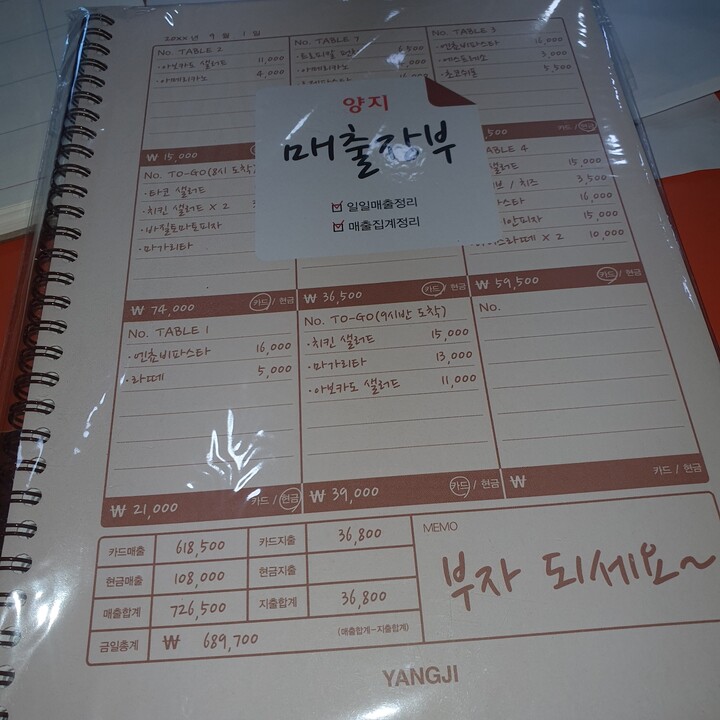 20XX 년 9 월 1 일
No. TABLE 2
·아보카도 샐러드 11,000
·아메리카노 4,000
₩ 15,000
No. TABLE 7
6,500
·아메리카노
No. TABLE 3
·엔쵸비파스타 16,000
·에스프레소 3,000
·초코쉬폰 5,500
카드 / 현금
양지
매출장부
일일매출정리
매출집계정리
No. TO-GO(8시 도착)
·타코 샐러드
·치킨 샐러드 X 2
·바질토마토피자
·마가리타
₩ 74,000 카드 / 현금
₩ 36,500 카드 / 현금
TABLE 4
샐러드 15,000
/ 치즈 3,500
파스타 16,000
15,000
X 2 10,000
₩ 59,500 카드 / 현금
No. TABLE 1
·엔쵸비파스타 16,000
·라떼 5,000
₩ 21,000 카드 / 현금
No. TO-GO(9시반 도착)
·치킨 샐러드 15,000
·마가리타 13,000
·아보카도 샐러드 11,000
₩ 39,000 카드 / 현금
No.
₩ 카드 / 현금
카드매출 618,500 카드지출 36,800
현금매출 108,000 현금지출
매출합계 726,500 지출합계 36,800
금일총계 ₩ 689,700 (매출합계-지출합계)
MEMO
부자 되세요~
YANGJI